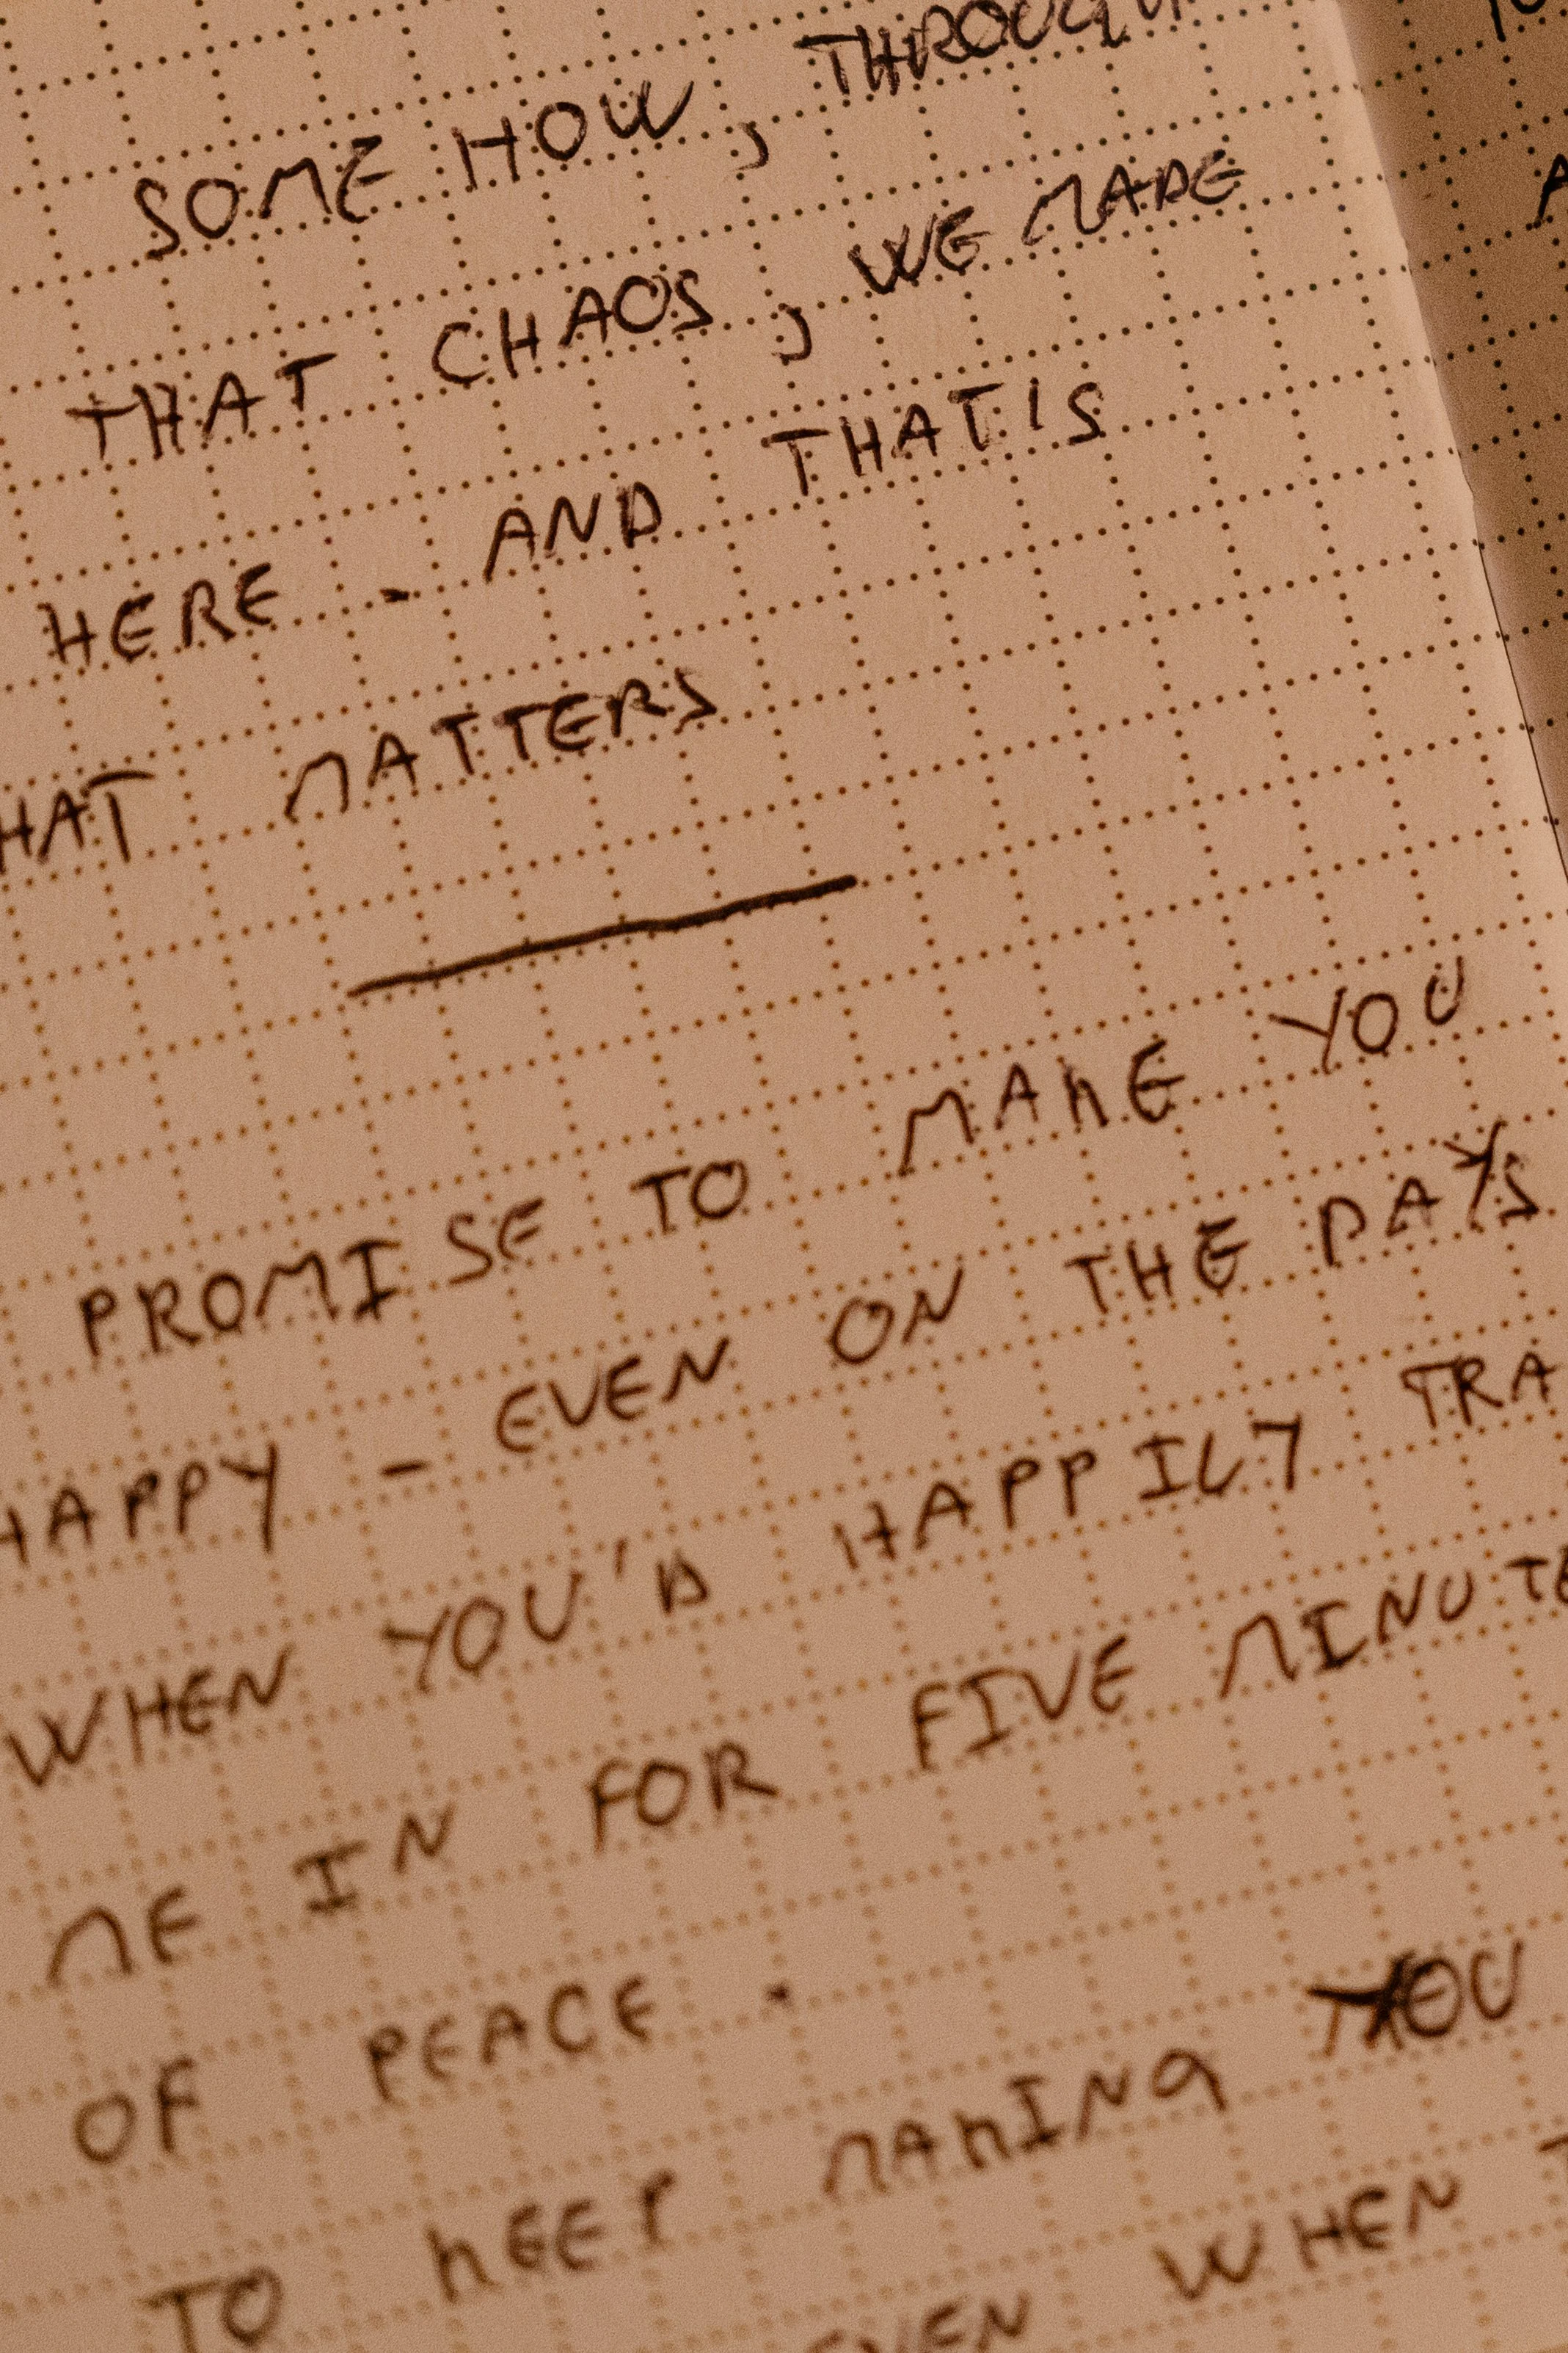 SOME HOW, THROUGH
THAT CHAOS, WE MADE
HERE - AND THAT IS
HAT MATTERS
PROMISE TO MAKE YOU
HAPPY - EVEN ON THE DAYS
WHEN YOU'D HAPPILY TRA
ME IN FOR FIVE MINUTE
OF PEACE.
TO KEEP MAKING YOU
EVEN WHEN T